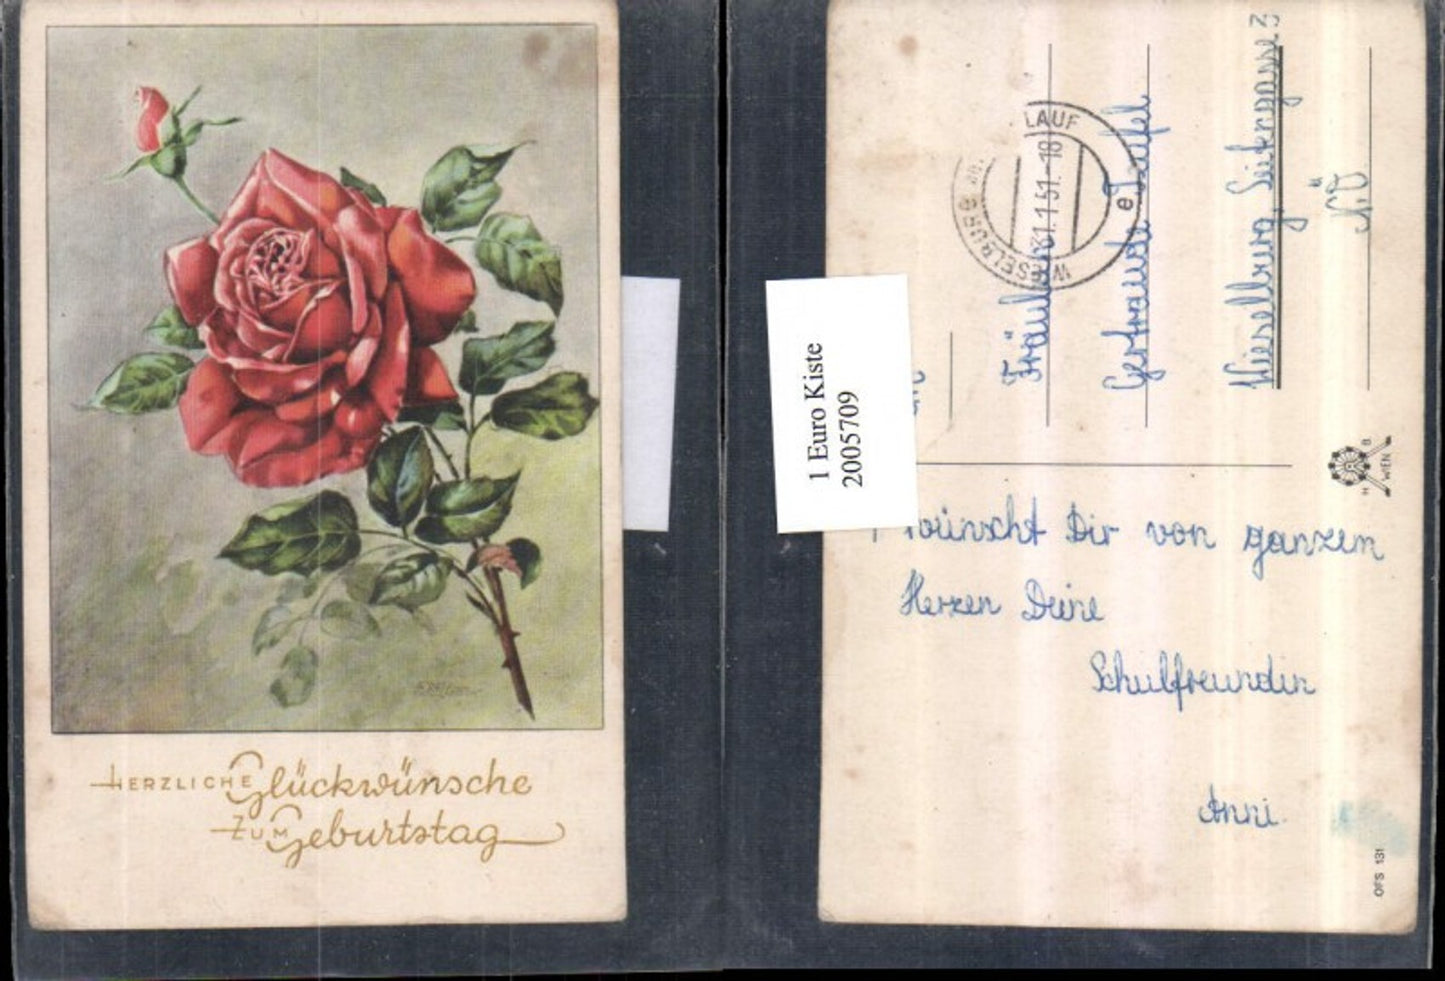 HERZLICHE Glückwünsche
ZUM Geburtstag
1 Euro Kiste
2005709
WIESELBURG
LAUF
31.1.51.-18
e
Fräulein
Gertraude Teufel
Wieselburg, Seitengasse 3
N.Ö
H B
WIEN
wünscht Dir von ganzem
Herzen Deine
Schulfreundin
Anni.
OFS 131